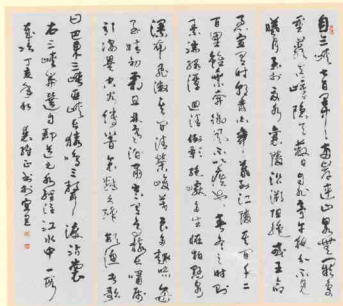 自三峽七百里中兩岸連山略無闕
處重巖疊嶂隱天蔽日自非亭午夜分不見
曦月至於夏水襄陵沿溯阻絕或王命
急宣有時朝發白帝暮到江陵其間千二
百里雖乘奔御風不以疾也春冬之時則
素湍綠潭迴清倒影絕巘多生怪柏懸泉
瀑布飛漱其間清榮峻茂良多趣味每
至晴初霜旦林寒澗肅常有高猿長嘯屬
引淒異空谷傳響哀轉久絕故漁者歌
曰巴東三峽巫峽長猿鳴三聲淚沾裳
右三峽 酈道元水經注江水中一段
丁亥